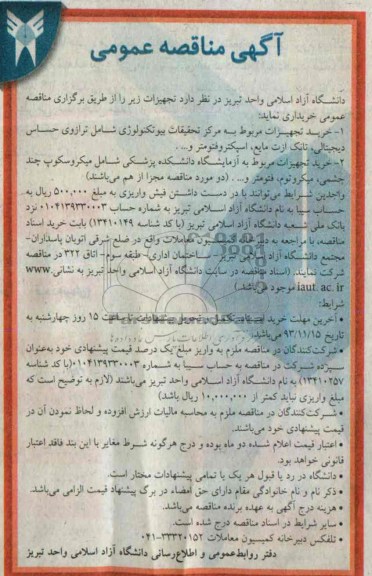 آگهی مناقصه عمومی
دانشگاه آزاد اسلامی واحد تبریز در نظر دارد تجهیزات زیر را از طریق برگزاری مناقصه
عمومی خریداری نماید:
۱- خرید تجهیزات مربوط به مرکز تحقیقات بیوتکنولوژی شامل ترازوی حساس
دیجیتالی، تانک ازت مایع، اسپکتروفوتومتر و... .
۲- خرید تجهیزات مربوط به آزمایشگاه دانشکده پزشکی شامل میکروسکوپ چند
چشمی، میکروتوم، فتومتر و... . (دو مورد مناقصه مجزا از هم می‌باشند)
واجدین شرایط می‌توانند با در دست داشتن فیش واریزی به مبلغ ۵۰۰,۰۰۰ ریال به
حساب سیبا به نام دانشگاه آزاد اسلامی تبریز به شماره حساب ۰۱۰۴۱۳۹۳۳۰۰۰۳ نزد
بانک ملی شعبه دانشگاه آزاد اسلامی تبریز (با کد شناسه ۱۳۴۱۰۱۴۹) بابت خرید اسناد
مناقصه، با مراجعه به دبیرخانه کمیسیون معاملات واقع در ضلع شرقی اتوبان پاسداران-
مجتمع دانشگاه آزاد اسلامی تبریز- ساختمان اداری- طبقه سوم- اتاق ۳۲۲ در مناقصه
شرکت نمایند. (اسناد مناقصه در سایت دانشگاه آزاد اسلامی واحد تبریز به نشانی www.
iaut.ac.ir موجود می‌باشد)
شرایط:
• آخرین مهلت خرید اسناد، تکمیل و تحویل پیشنهادات تا ساعت ۱۵ روز چهارشنبه به
تاریخ ۹۳/۱۱/۱۵ می‌باشد.
• شرکت‌کنندگان در مناقصه ملزم به واریز مبلغ یک درصد قیمت پیشنهادی خود به‌عنوان
سپرده شرکت در مناقصه به حساب سیبا به شماره ۰۱۰۴۱۳۹۳۳۰۰۰۳ (با کد شناسه
۱۳۴۱۰۲۵۷) به نام دانشگاه آزاد اسلامی واحد تبریز می‌باشند (لازم به توضیح است که
مبلغ واریزی نباید کمتر از ۱۰,۰۰۰,۰۰۰ ریال باشد)
• شرکت‌کنندگان در مناقصه ملزم به محاسبه مالیات ارزش افزوده و لحاظ نمودن آن در
قیمت پیشنهادی خود می‌باشند.
• اعتبار قیمت اعلام شده دو ماه بوده و درج هرگونه شرط مغایر با این بند فاقد اعتبار
قانونی خواهد بود.
• دانشگاه در رد یا قبول هر یک یا تمامی پیشنهادات مختار است.
• ذکر نام و نام خانوادگی مقام دارای حق امضاء در برگ پیشنهاد قیمت الزامی می‌باشد.
• هزینه درج آگهی به عهده برنده مناقصه می‌باشد.
• سایر شرایط در اسناد مناقصه درج شده است.
• تلفکس دبیرخانه کمیسیون معاملات ۳۳۳۲۰۱۵۲-۰۴۱
دفتر روابط‌عمومی و اطلاع‌رسانی دانشگاه آزاد اسلامی واحد تبریز